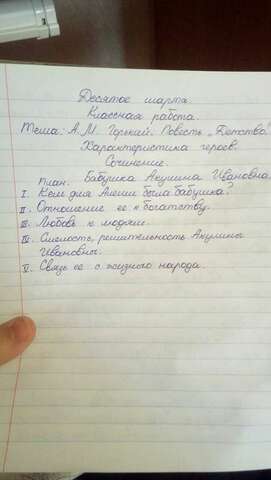 Десятое марта.
Классная работа.
Тема: А.М. Горький. Повесть „Детство".
Характеристика героев.
Сочинение.
Бабушка Акулина Ивановна.
План.
I. Кем для Алеши была бабушка?
II. Отношение ее к богатству.
III. Любовь к людям.
IV. Смелость, решительность Акулины
Ивановны.
V. Связь ее с жизнью народа.